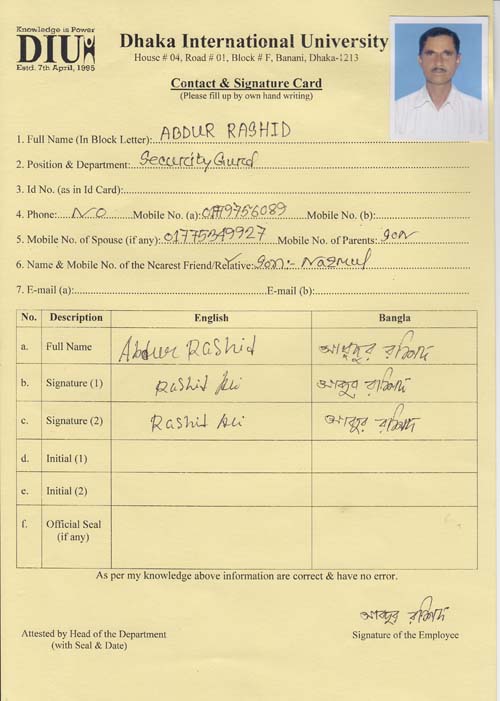 Knowledge is Power
DIU
Estd. 7th April, 1995
Dhaka International University
House # 04, Road # 01, Block # F, Banani, Dhaka-1213
Contact & Signature Card
(Please fill up by own hand writing)
1. Full Name (In Block Letter): ABDUR RASHID
2. Position & Department: Securcity Gurd
3. Id No. (as in Id Card):
4. Phone: NO Mobile No. (a): Mobile No. (b):
5. Mobile No. of Spouse (if any): 01775349927 Mobile No. of Parents: son
6. Name & Mobile No. of the Nearest Friend/Relative: son:- Nazmul
7. E-mail (a): E-mail (b):
No. Description English Bangla
a. Full Name Abdur Rashid আব্দুর রশিদ
b. Signature (1) Rashid Ali আব্দুর রশিদ
c. Signature (2) Rashid Ali আব্দুর রশিদ
d. Initial (1)
e. Initial (2)
f. Official Seal
(if any)
As per my knowledge above information are correct & have no error.
আব্দুর রশিদ
Attested by Head of the Department Signature of the Employee
(with Seal & Date)